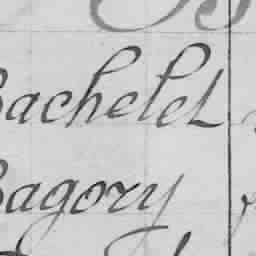 Bachelet
Bagory